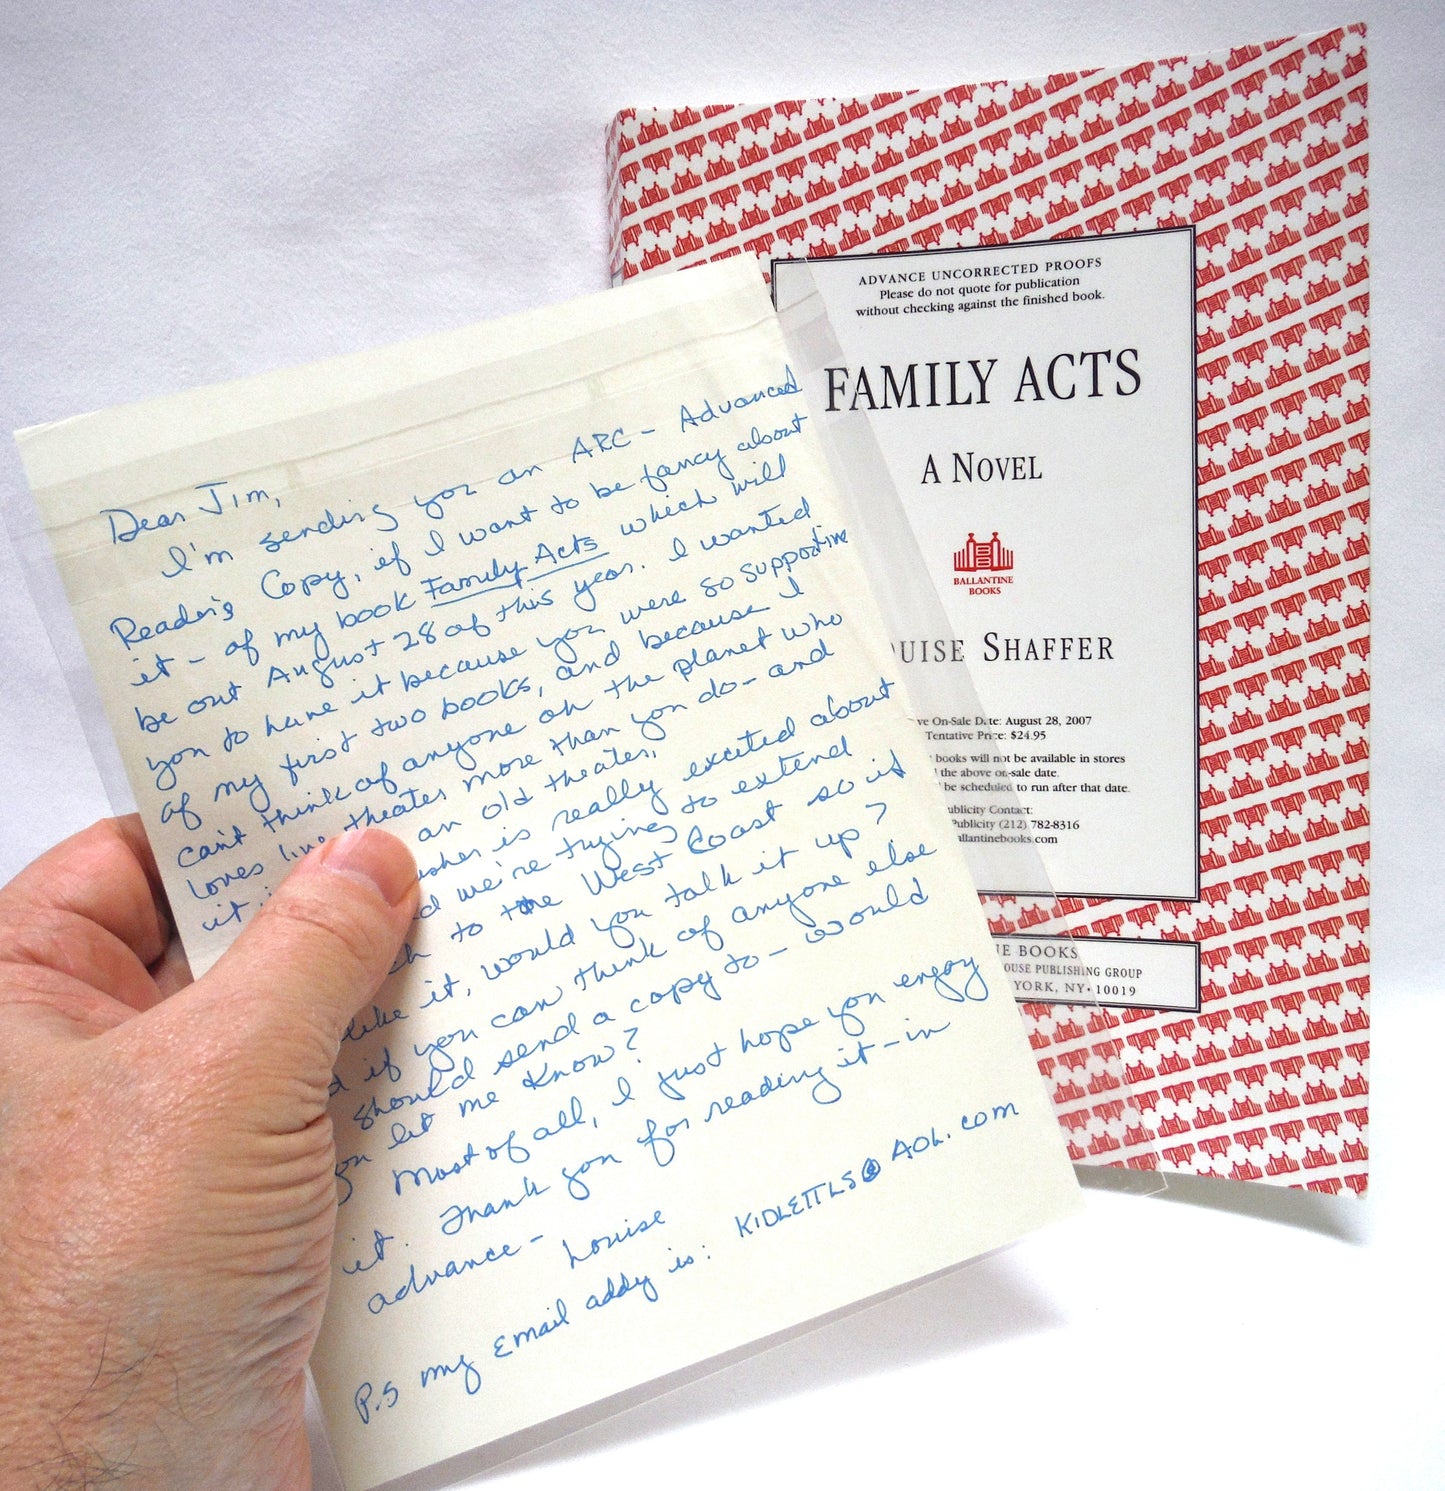 Dear Jim,
I'm sending you an ARC - Advanced
Reader's Copy, if I want to be fancy about
it - of my book Family Acts which will
be out August 28 of this year. I wanted
you to have it because you were so supportive
of my first two books, and because I
can't think of anyone on the planet who
loves live theater more than you do - and
it an old theater.
is really excited about
we're trying to extend
to the West Coast so if
like it, would you talk it up?
if you can think of anyone else
should send a copy to - would
let me know?
Most of all, I just hope you enjoy
it. Thank you for reading it - in
advance -
Louise
P.S my Email addy is: KIDLETTLS@AOL.COM
ADVANCE UNCORRECTED PROOFS
Please do not quote for publication
without checking against the finished book.
FAMILY ACTS
A NOVEL
BALLANTINE
BOOKS
SHAFFER
On-Sale Date: August 28, 2007
Tentative Price: $24.95
books will not be available in stores
the above on-sale date.
be scheduled to run after that date.
Contact:
Publicity (212) 782-8316
BOOKS
PUBLISHING GROUP
YORK, NY • 10019